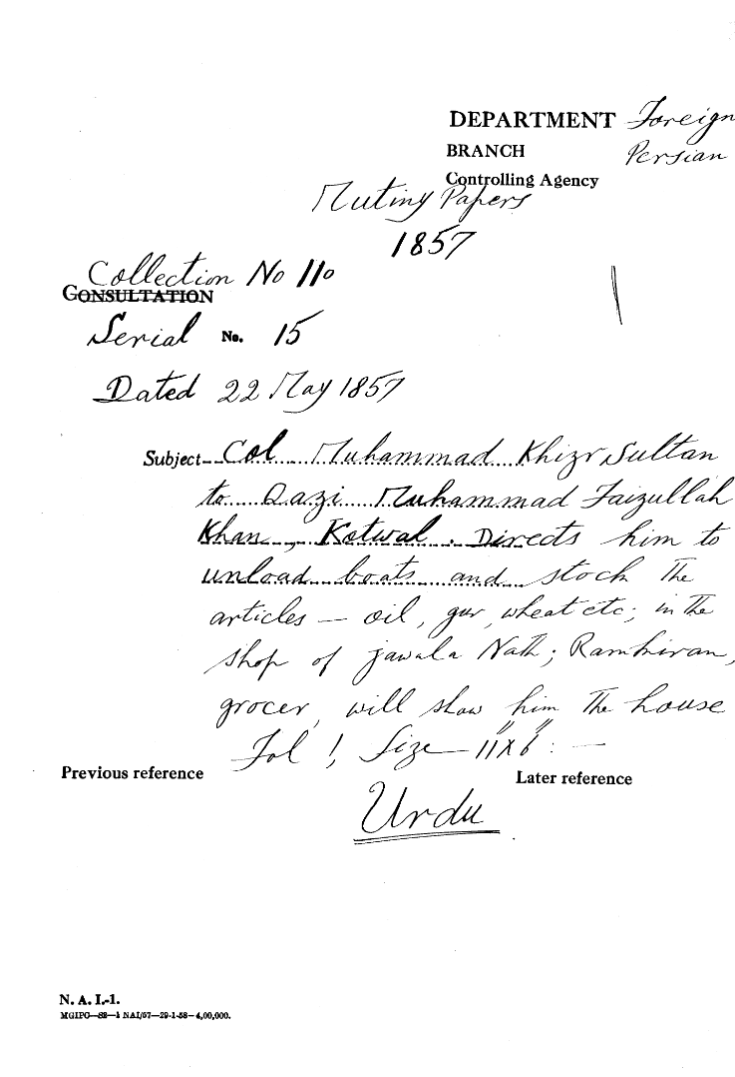 DEPARTMENT Foreign
BRANCH Persian
Controlling Agency
Mutiny Papers
1857
Collection No 110
CONSULTATION
Serial No. 15
Dated 22 May 1857
Subject Col Muhammad Khizr Sultan
to Qazi Muhammad Faizullah
Khan, Kotwal. Directs him to
unload boats and stock the
articles — oil, gur, wheat etc; in the
shop of jawala Nath; Ramkiran,
grocer, will show him the house
Fol 1, Size — 11"x6" : —
Previous reference Later reference
Urdu
N. A. I.-1.
MGIPC—S2—1 NAI/57—29-1-58—4,00,000.